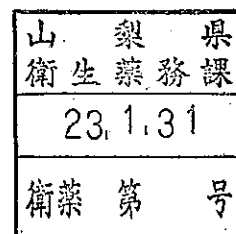 山梨県
衛生薬務課
23.1.31
衛薬第　号